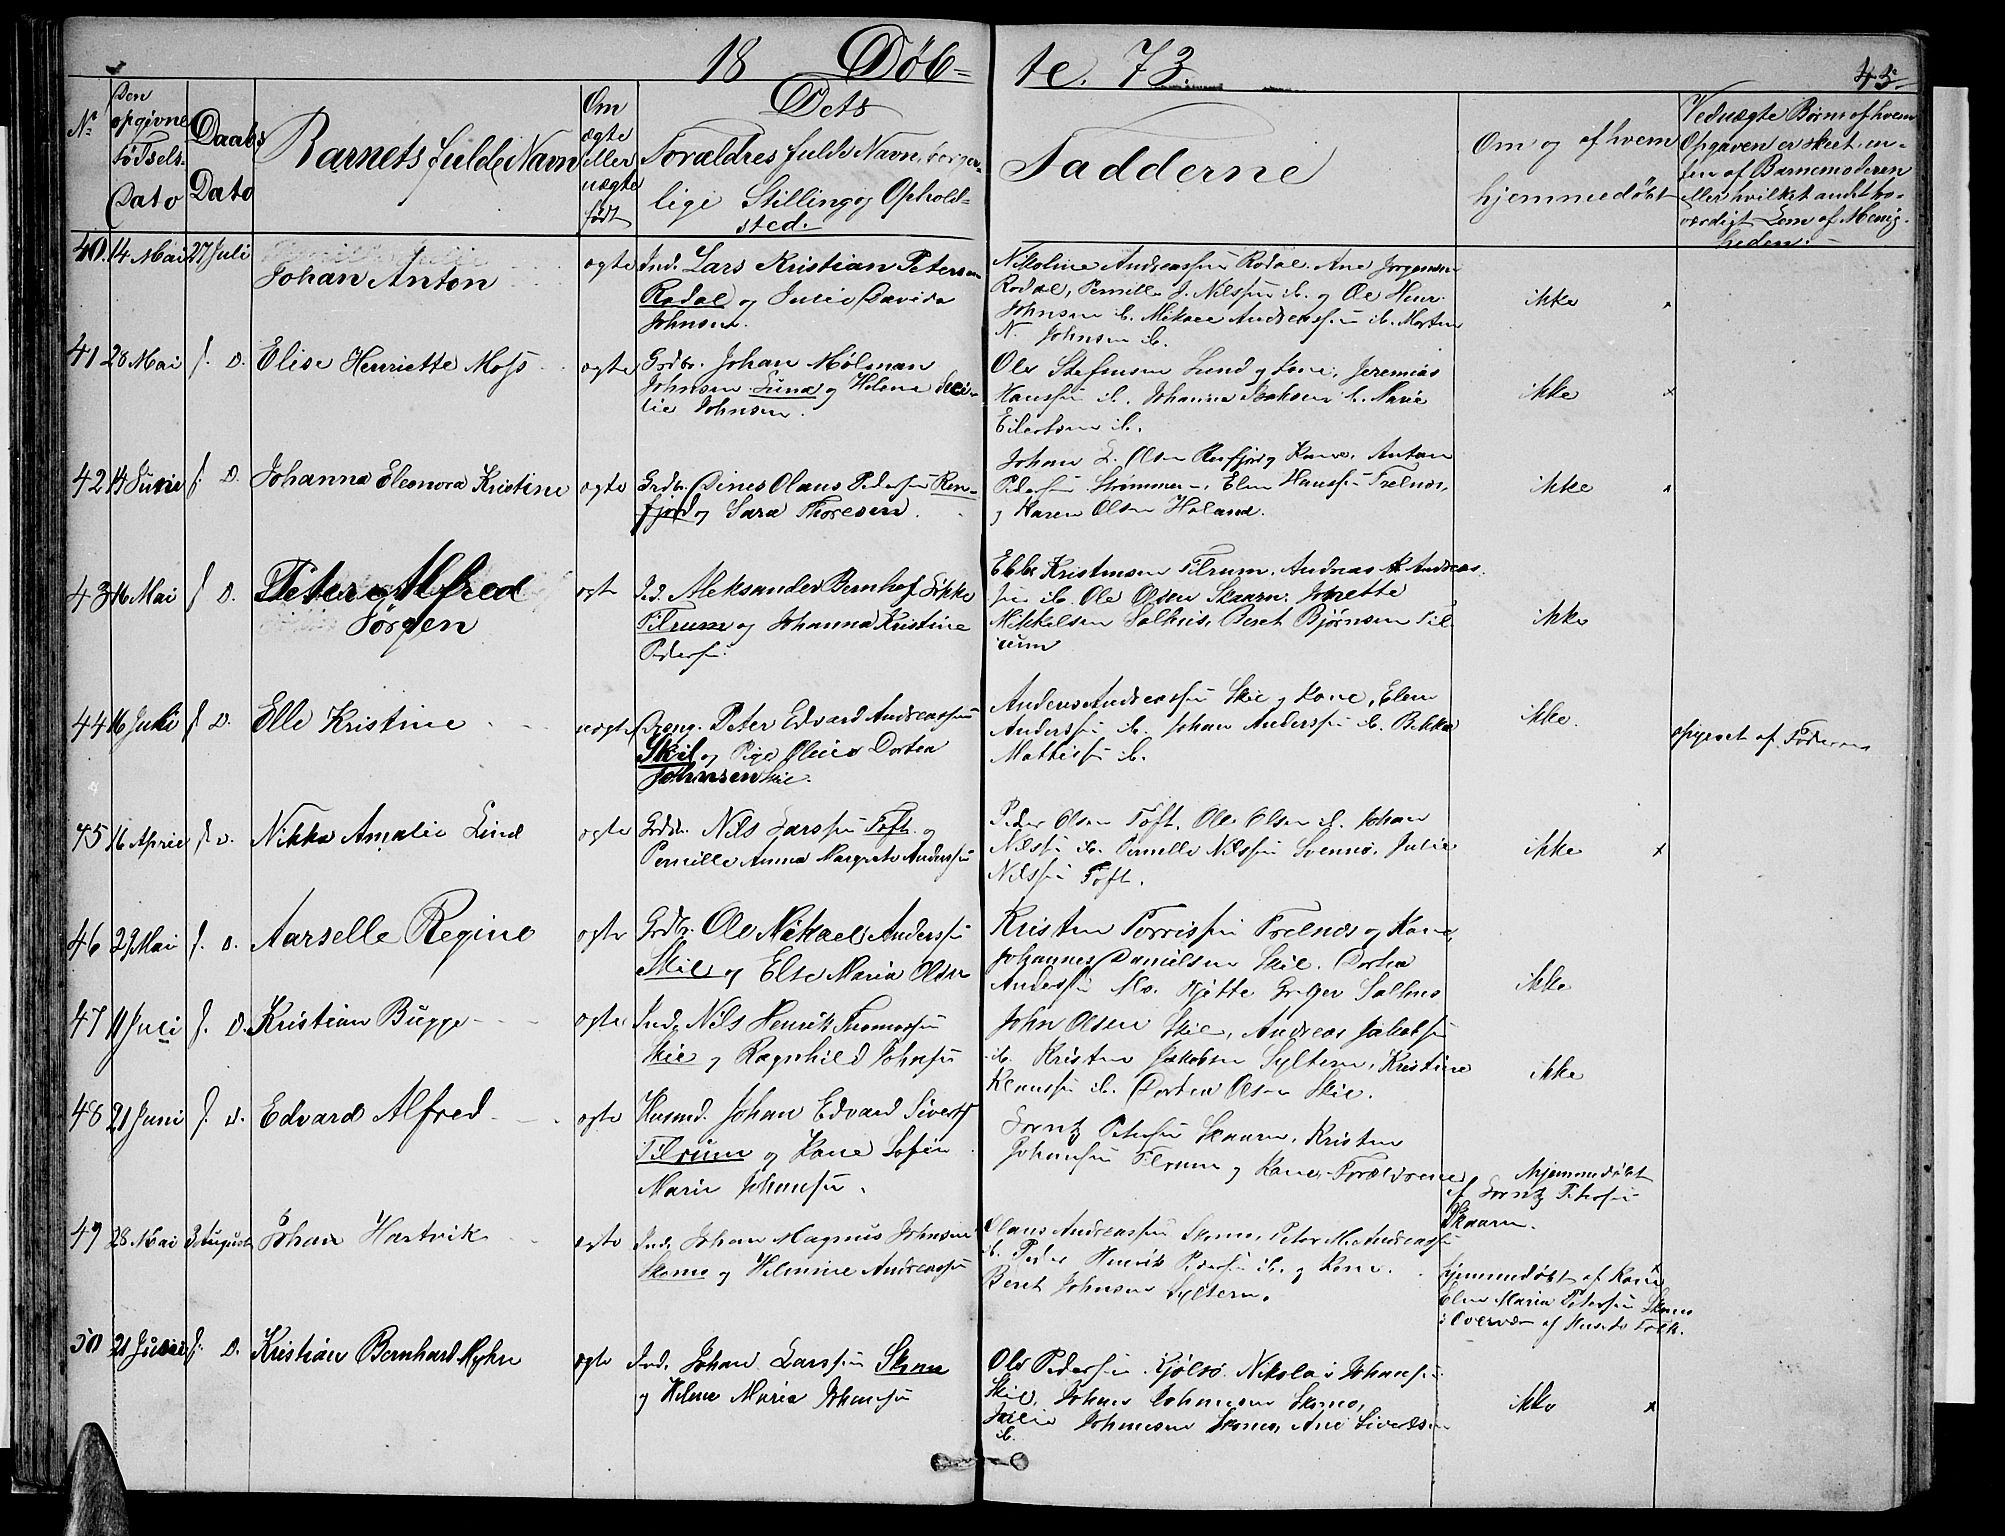 18 Døb=
te. 73.
45
Nr
Den opgivne Fødsels Dato
Daabs Dato
Barnets fulde Navn
Om ægte eller uægte født
Dets Forældres fulde Navn, borger-
lige Stilling og Ophold-
sted.
Fadderne
Om og af hvem
hjemmedøbt
Ved uægte Børn af hvem
Opgaven er skeet, en-
ten af Barnemoderen
eller hvilket andet tro-
værdigt Lem af Menig-
heden.
40. 14 Mai 27 Juli Johan Anton ægte Ind. Lars Kristian Petersen
Rødal og Julie Davida
Johnsen.
Nikoline Andreassen Rødal. Ane Jørgensen
Rødal, Pernille J. Nilssen ib. og Ole Henr.
Johnsen ib. Mikael Andreassen ib. Morten
N. Johnsen ib.
ikke
41 28 Mai s. D. Elise Henriette Moss ægte Grdbr. Johan Mølman
Johnsen Lund og Helena Seci-
lie Johnsen.
Ole Stefensen Lund og Kone, Jeremias
Hanssen ib. Johanna Isaksen ib. Marie
Eilertsen ib.
ikke
42 14 Juni s. D. Johanna Eleonora Kristine ægte Grdbr. Dines Olaus Pedersen Ren-
fjord og Sara Thoresen.
Johan L. Olsen Renfjord og Kone, Anton
Pedersen Strømmen, Elen Hanssen Trelnes,
og Karen Olsen Høland.
ikke
43 16 Mai s. D. Peter Alfred
Jørgen
ægte Ind. Aleksander Bernhof Løkke
Tilrum og Johanna Kristine
Pedersen.
Ebbe Kristensen Tilrum, Andreas A. Andreas-
sen ib. Ole Olsen Skaarn. Jonette
Mikkelsen Salhus, Beret Bjørnsen Til-
rum
ikke
44 16 Juli s. D. Elle Kristine uægte Dreng. Peter Edvard Andreassen
Skil og Pige Oleie Dortea
Johnsen Skie.
Anders Andreassen Skie og Kone, Elen
Anderssen ib. Johan Anderssen ib. Bekka
Mattissen ib.
ikke.
opgivet af Faderen
45 16 April s. D. Nikka Amalie Lund ægte Grdbr. Nils Larssen Toft. og
Pernille Anna Margrete Anderssen
Peder Olsen Toft. Ole Olsen ib. Johan
Nilssen ib. Pernille Nilssen Svennø, Julie
Nilssen Toft.
ikke
46 29 Mai s. D. Aarselle Regine ægte Grdbr. Ole Mikael Anderssen
Skie og Else Maria Olsen
Kristen Torrissen Trelnes og Kone,
Johannes Danielsen Skie. Dortea
Anderssen Mo. Salhus
ikke
47 11 Juli s. D. Kristian Bugge ægte Ind. Nils Henrik Thomassen
Skie og Ragnhild Johnsen
John Olsen Skie, Andreas Jakobsen
ib. Kristen Jakobsen Syltern, Kristine
Klaussen ib. Dortea Olsen Skie.
ikke
48 21 Juni s. D. Edvard Alfred ægte Husmd. Johan Edvard Siverts
Tilrum og Kone Sofie
Marie Johansen.
Lorntz Petersen Skaarn. Kristen
Johansen Tilrum og Kone, Forældrene
hjemmedøbt
af Lorntz Petersen
Skaarn.
49 28 Mai 3 August Johan Hartvik ægte Ind. Johan Magnus Johnsen
Skomo og Helmine Andreassen
Olaus Andreassen Skomo, Peter M. Andreassen
ib. Peder Henrik Pedersen ib. og Kone.
Beret Johnsen Syltern.
hjemmedøbt af Kone
Elen Maria Petersen Skomo
i Overvær af Husets Folk.
50 21 s. D. Kristian Bernhard Myhre ægte Ind. Johan Larssen Skomo
og Helene Maria Johansen
Ole Pedersen Kjølsø. Nikolai Johansen
Skie, Johan Johannesen Skomo,
Julie Johannesen Skomo, Ane Sivertsen
ib.
ikke